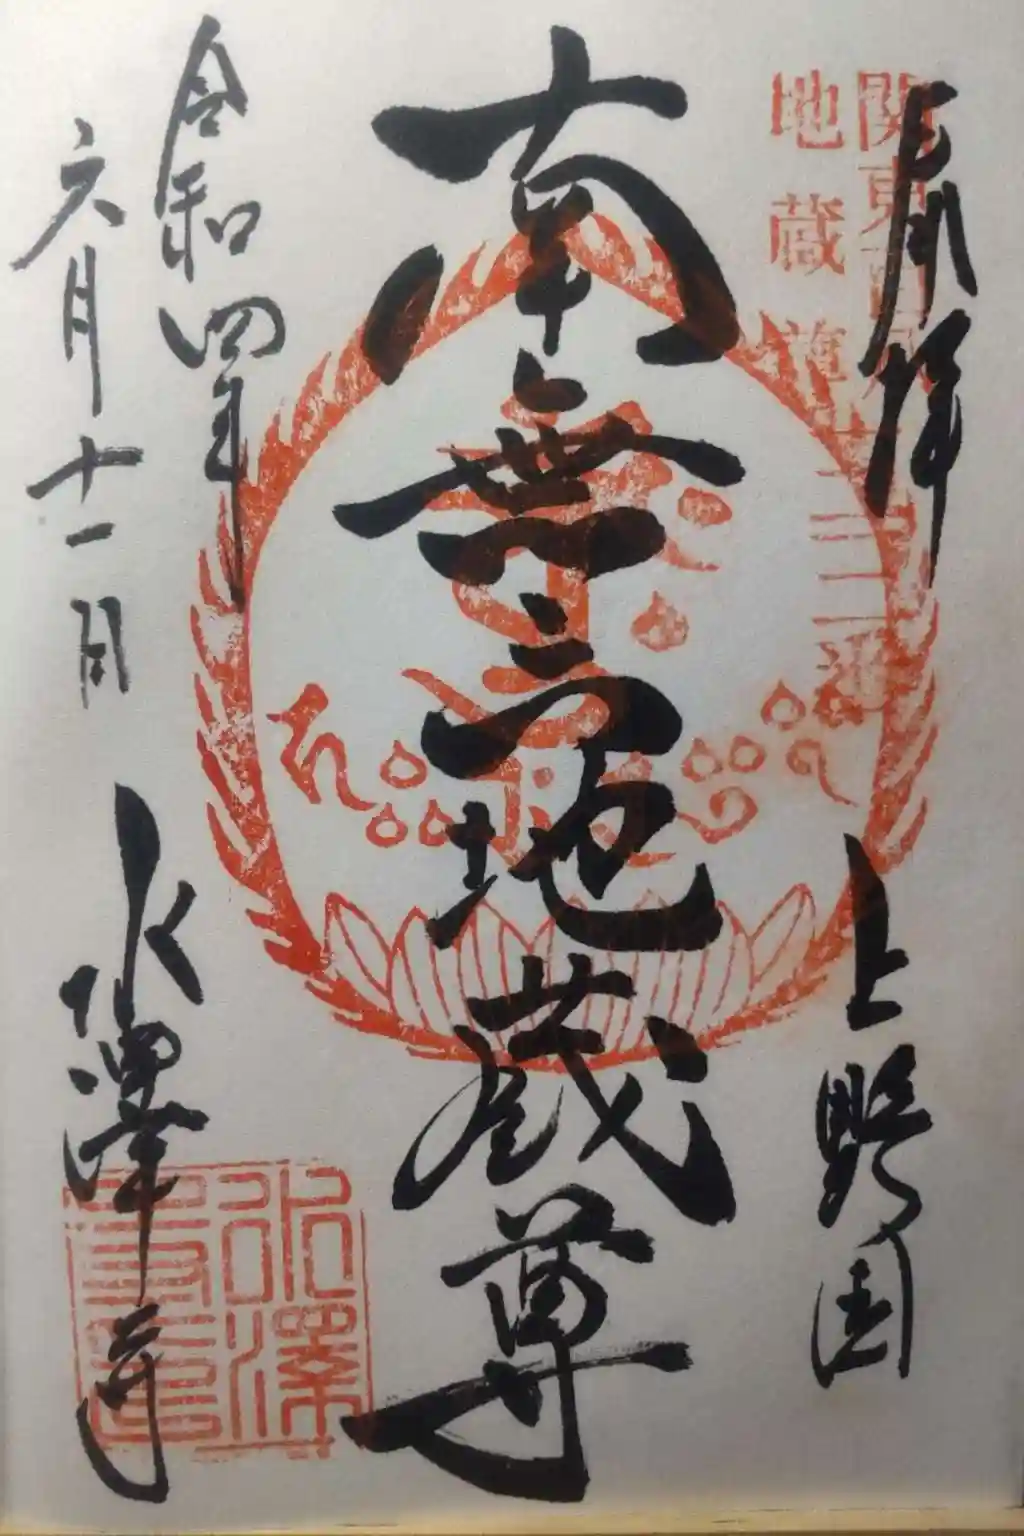 奉拝
上野国
関東百八
地蔵尊
三十二番
南無六地蔵尊
令和四年
六月十一日
水澤寺
水澤